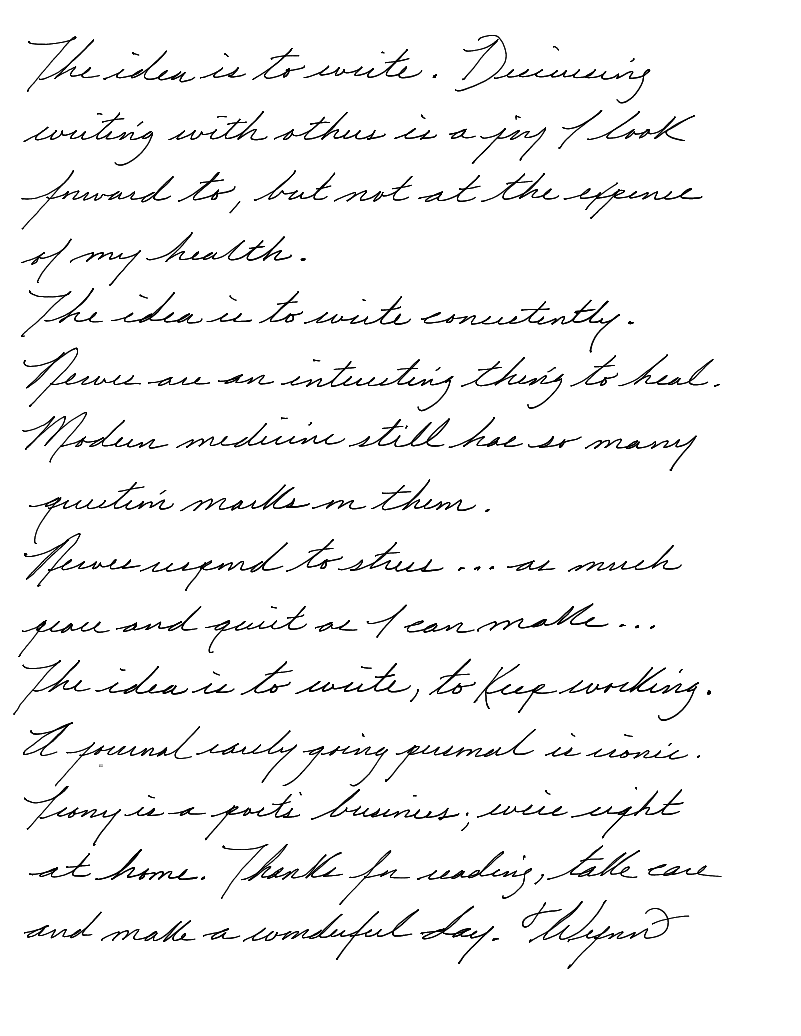 The idea is to write. Discussing
writing with others is a joy I look
forward to, but not at the expense
of my health.
The idea is to write consistently.
Nerves are an interesting thing to heal.
Modern medicine still has so many
question marks on them.
Nerves respond to stress ... as much
peace and quiet as I can make ...
The idea is to write, to keep working.
A journal rarely going personal is ironic.
Irony is a poet's business; we're right
at home. Thanks for reading, take care
and make a wonderful day. Wynn